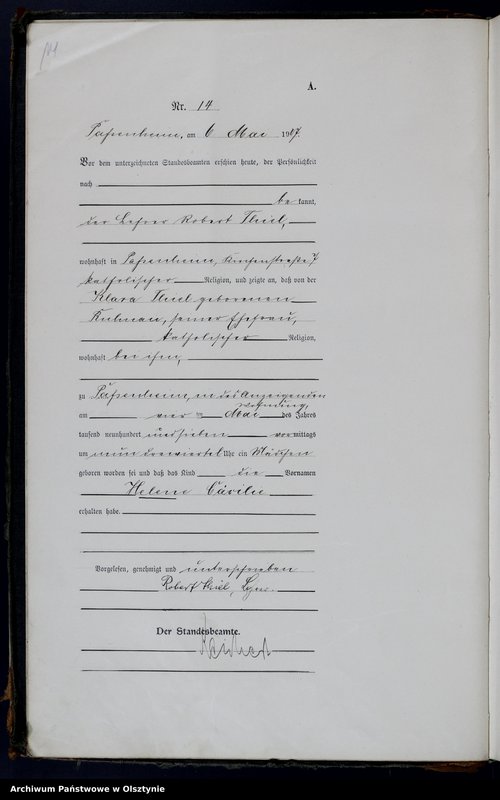 A.
Nr. 14
Passenheim, am 6 Mai 1907.
Vor dem unterzeichneten Standesbeamten erschien heute, der Persönlichkeit
nach
be kannt,
der Lehrer Robert Thiel,
wohnhaft in Passenheim, Kirchenstraße 7
katholischer Religion, und zeigte an, daß von der
Klara Thiel geborenen
seiner Ehefrau,
katholischer Religion,
wohnhaft bei ihm,
zu Passenheim, in des Anzeigenden
Wohnung,
am vier ten Mai des Jahres
tausend neunhundert und sieben vor mittags
um neun dreiviertel Uhr ein Mädchen
geboren worden sei und daß das Kind die Vornamen
Helene Cäcilie
erhalten habe.
Vorgelesen, genehmigt und unterschrieben
Robert Thiel,
Der Standesbeamte.
Archiwum Państwowe w Olsztynie